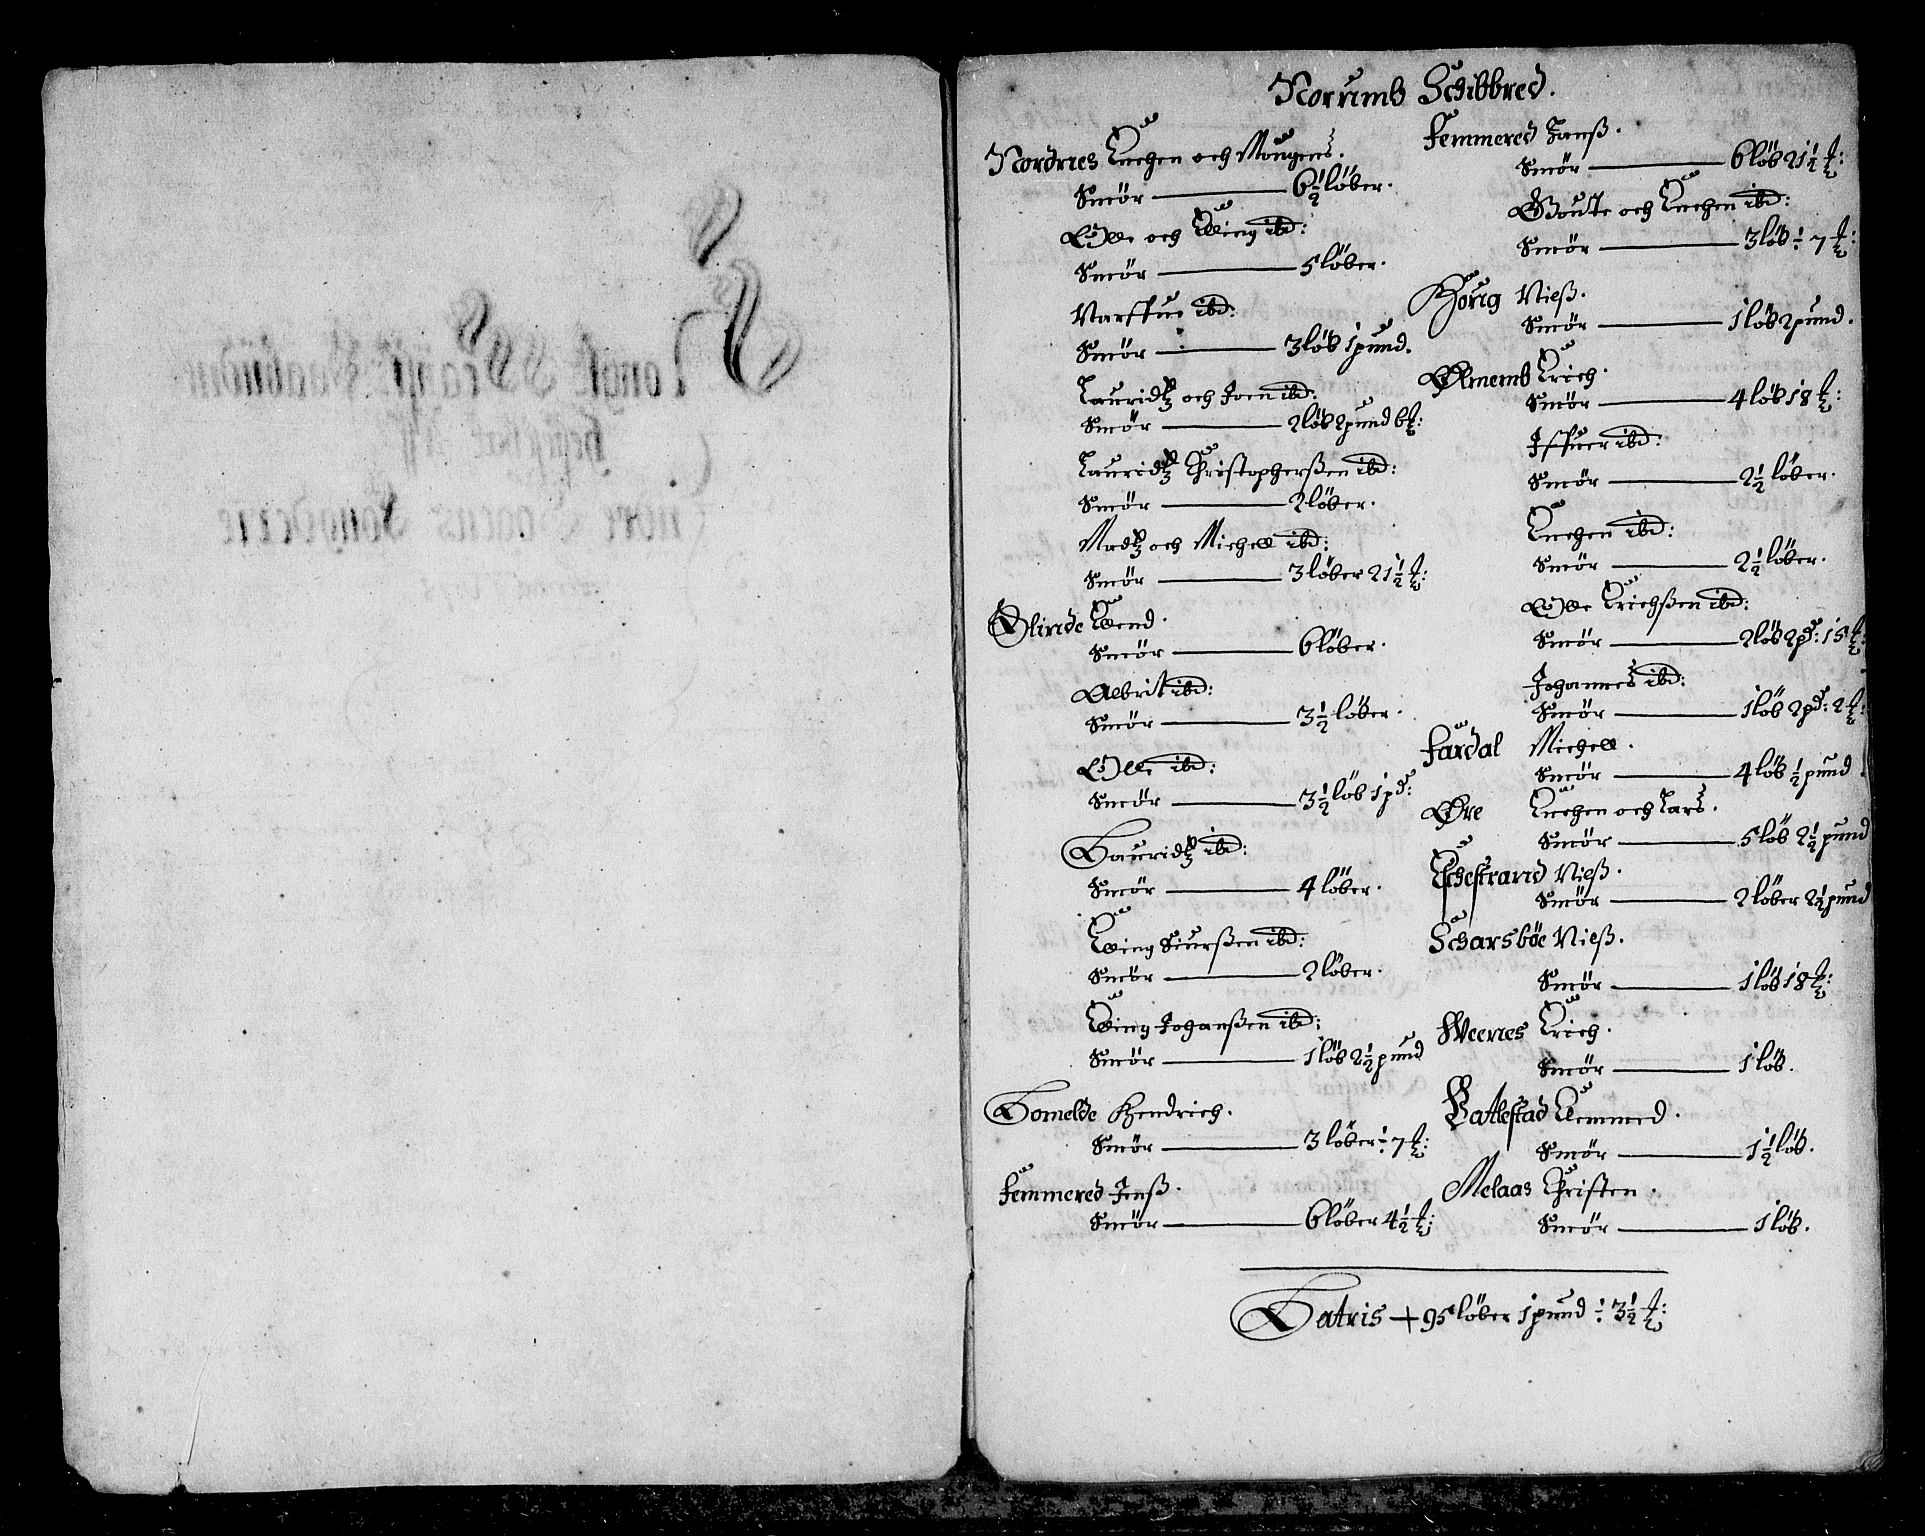 Norums Schibbred.
Nordnes Knehen och Mougens.
Smör — 6½ löber.
Olle och Elling ibd:
Smör — 5 löber.
Narffue ibd:
Smör — 3 löb 1 pund.
Lauridtz och Joen ibd:
Smör — 2 löb 2 pund 6 ℔:
Lauridtz Christopherßen ibd:
Smör — 2 löber.
Madtz och Michell ibd:
Smör — 3 löber 21½ ℔:
Slinde Elend.
Smör — 6 löber.
Albrit ibd:
Smör — 3½ löber.
Olle ibd:
Smör — 3½ löb 1 pd:
Lauridtz ibd:
Smör — 4 löber.
Elling Siurßen ibd:
Smör — 2 löber.
Elling Johanßen ibd:
Smör — 1 löb 2½ pund
Lomelde Hendrich.
Smör — 3 löber ÷ 7 ℔:
Femmered Jenß.
Smör — 6 löber 4½ ℔:
Femmered Hanß.
Smör — 6 löb 21½ ℔:
Goutte och Knehen ibd:
Smör — 3 löb ÷ 7 ℔:
Houg Nielß.
Smör — 1 löb 2 pund.
Ølmemb Erich.
Smör — 4 löb 18 ℔:
Iffuer ibd:
Smör — 2½ löber.
Knehen ibd:
Smör — 2½ löber.
Olle Erichßen ibd:
Smör — 2 löb 2 pd: 15 ℔:
Johannes ibd:
Smör — 1 löb 2 pd: 2 ℔:
Fardal Michell.
Smör — 4 löb ½ pund.
Øre Knehen och Lars.
Smör — 5 löb 2½ pund
Eschestrand Nielß.
Smör — 2 löber 2½ pund
Scharsböe Nielß.
Smör — 1 löb 18 ℔:
Weenes Erich.
Smör — 1 löb.
Battlestad Clemmed.
Smör — 1½ löb.
Melaas Christen.
Smör — 1 löb.
Latris + 95 löber 1 pund ÷ 3½ ℔: